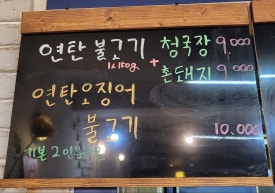 연탄 불고기
1人150g
+ 청국장 9,000
촌돼지 9,000
연탄오징어
불고기 10,000
기본 2인분